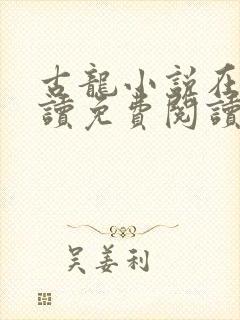 古龍小說在
讀免費閱讀
吴姜利